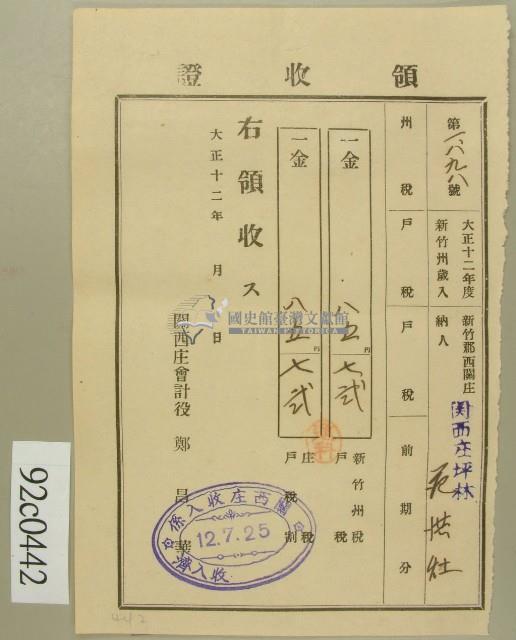 領收證
第一八九八號
大正十二年度 新竹郡西關庄
新竹州歲入 納人
関西庄坪林
范洪灶
州稅戶稅戶稅前期分
一金 八五円七弐 新竹州稅戶稅
一金 八五円七弐 庄稅戶稅割
右領收ス
大正十二年 月 日
關西庄會計役 鄭昌華
國史館臺灣文獻館
TAIWAN HISTORICA
關西庄收入係
12.7.25
收入濟
92c0442
442